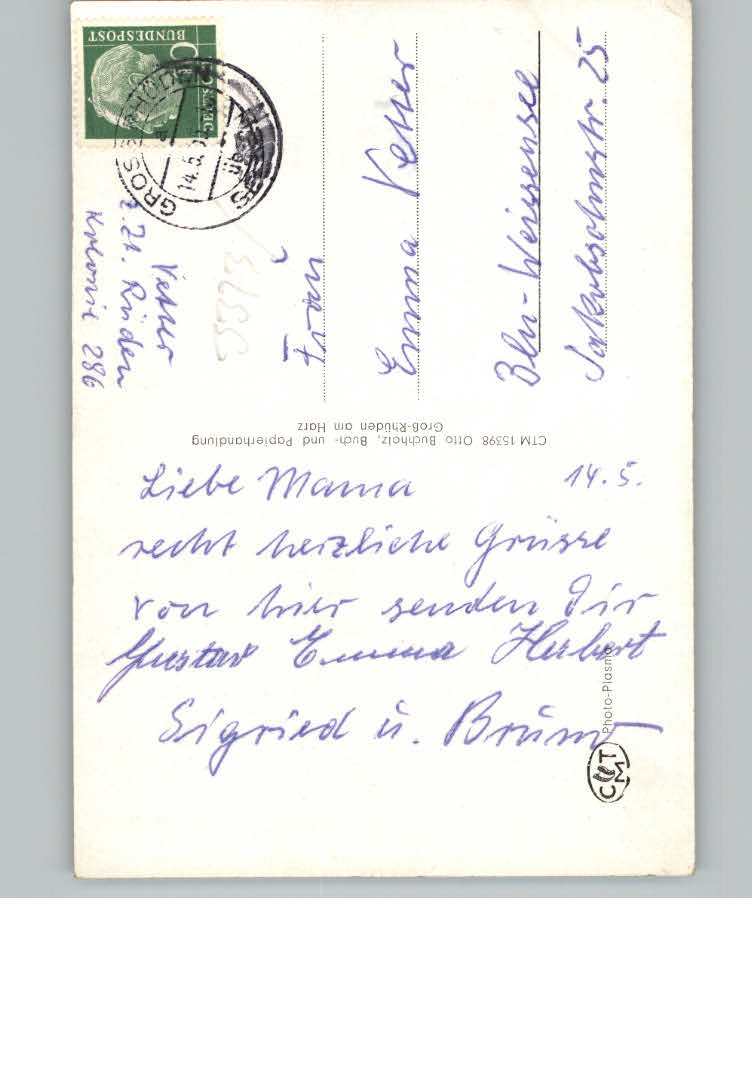 Liebe Mama 14.5.
recht herzliche Grüsse
von hier senden Dir
Gustav Emma Herbert
Sigried u. Bruno
Frau
Emma Vetter
Bln-Weissensee
Jakobsohnstr. 25
Vetter
z. Zt. Rüden
Kolonie 286
DEUTSCHE
BUNDESPOST
GROSS RHÜDEN
14.5.
über
CTM 15398 Otto Buchholz, Buch- und Papierhandlung
Groß-Rhüden am Harz
CTM
Photo-Plasma